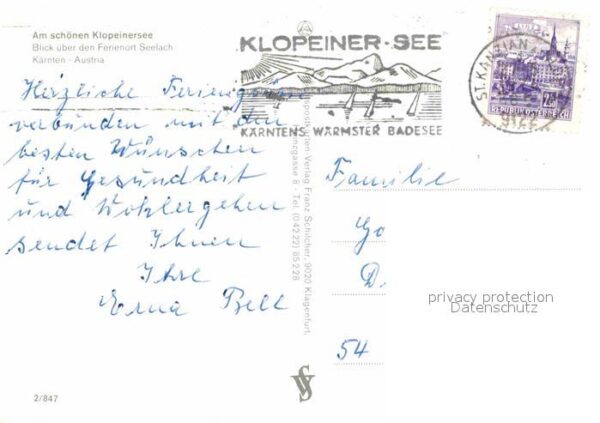 Am schönen Klopeinersee
Blick über den Ferienort Seelach
Kärnten - Austria
Herzliche
verbunden mit den
besten Wünschen
für Gesundheit
und Wohlergehen
sendet Ihnen
Ihre
Erna Bell
2/847
KLOPEINER-SEE
KÄRNTENS WÄRMSTER BADESEE
ST. KANZIAN
REPUBLIK ÖSTERREICH
Verlag Franz Schilcher, 9020 Klagenfurt,
gasse 8 - Tel. (04222) 85228
Familie
Go
D.
54
privacy protection
Datenschutz